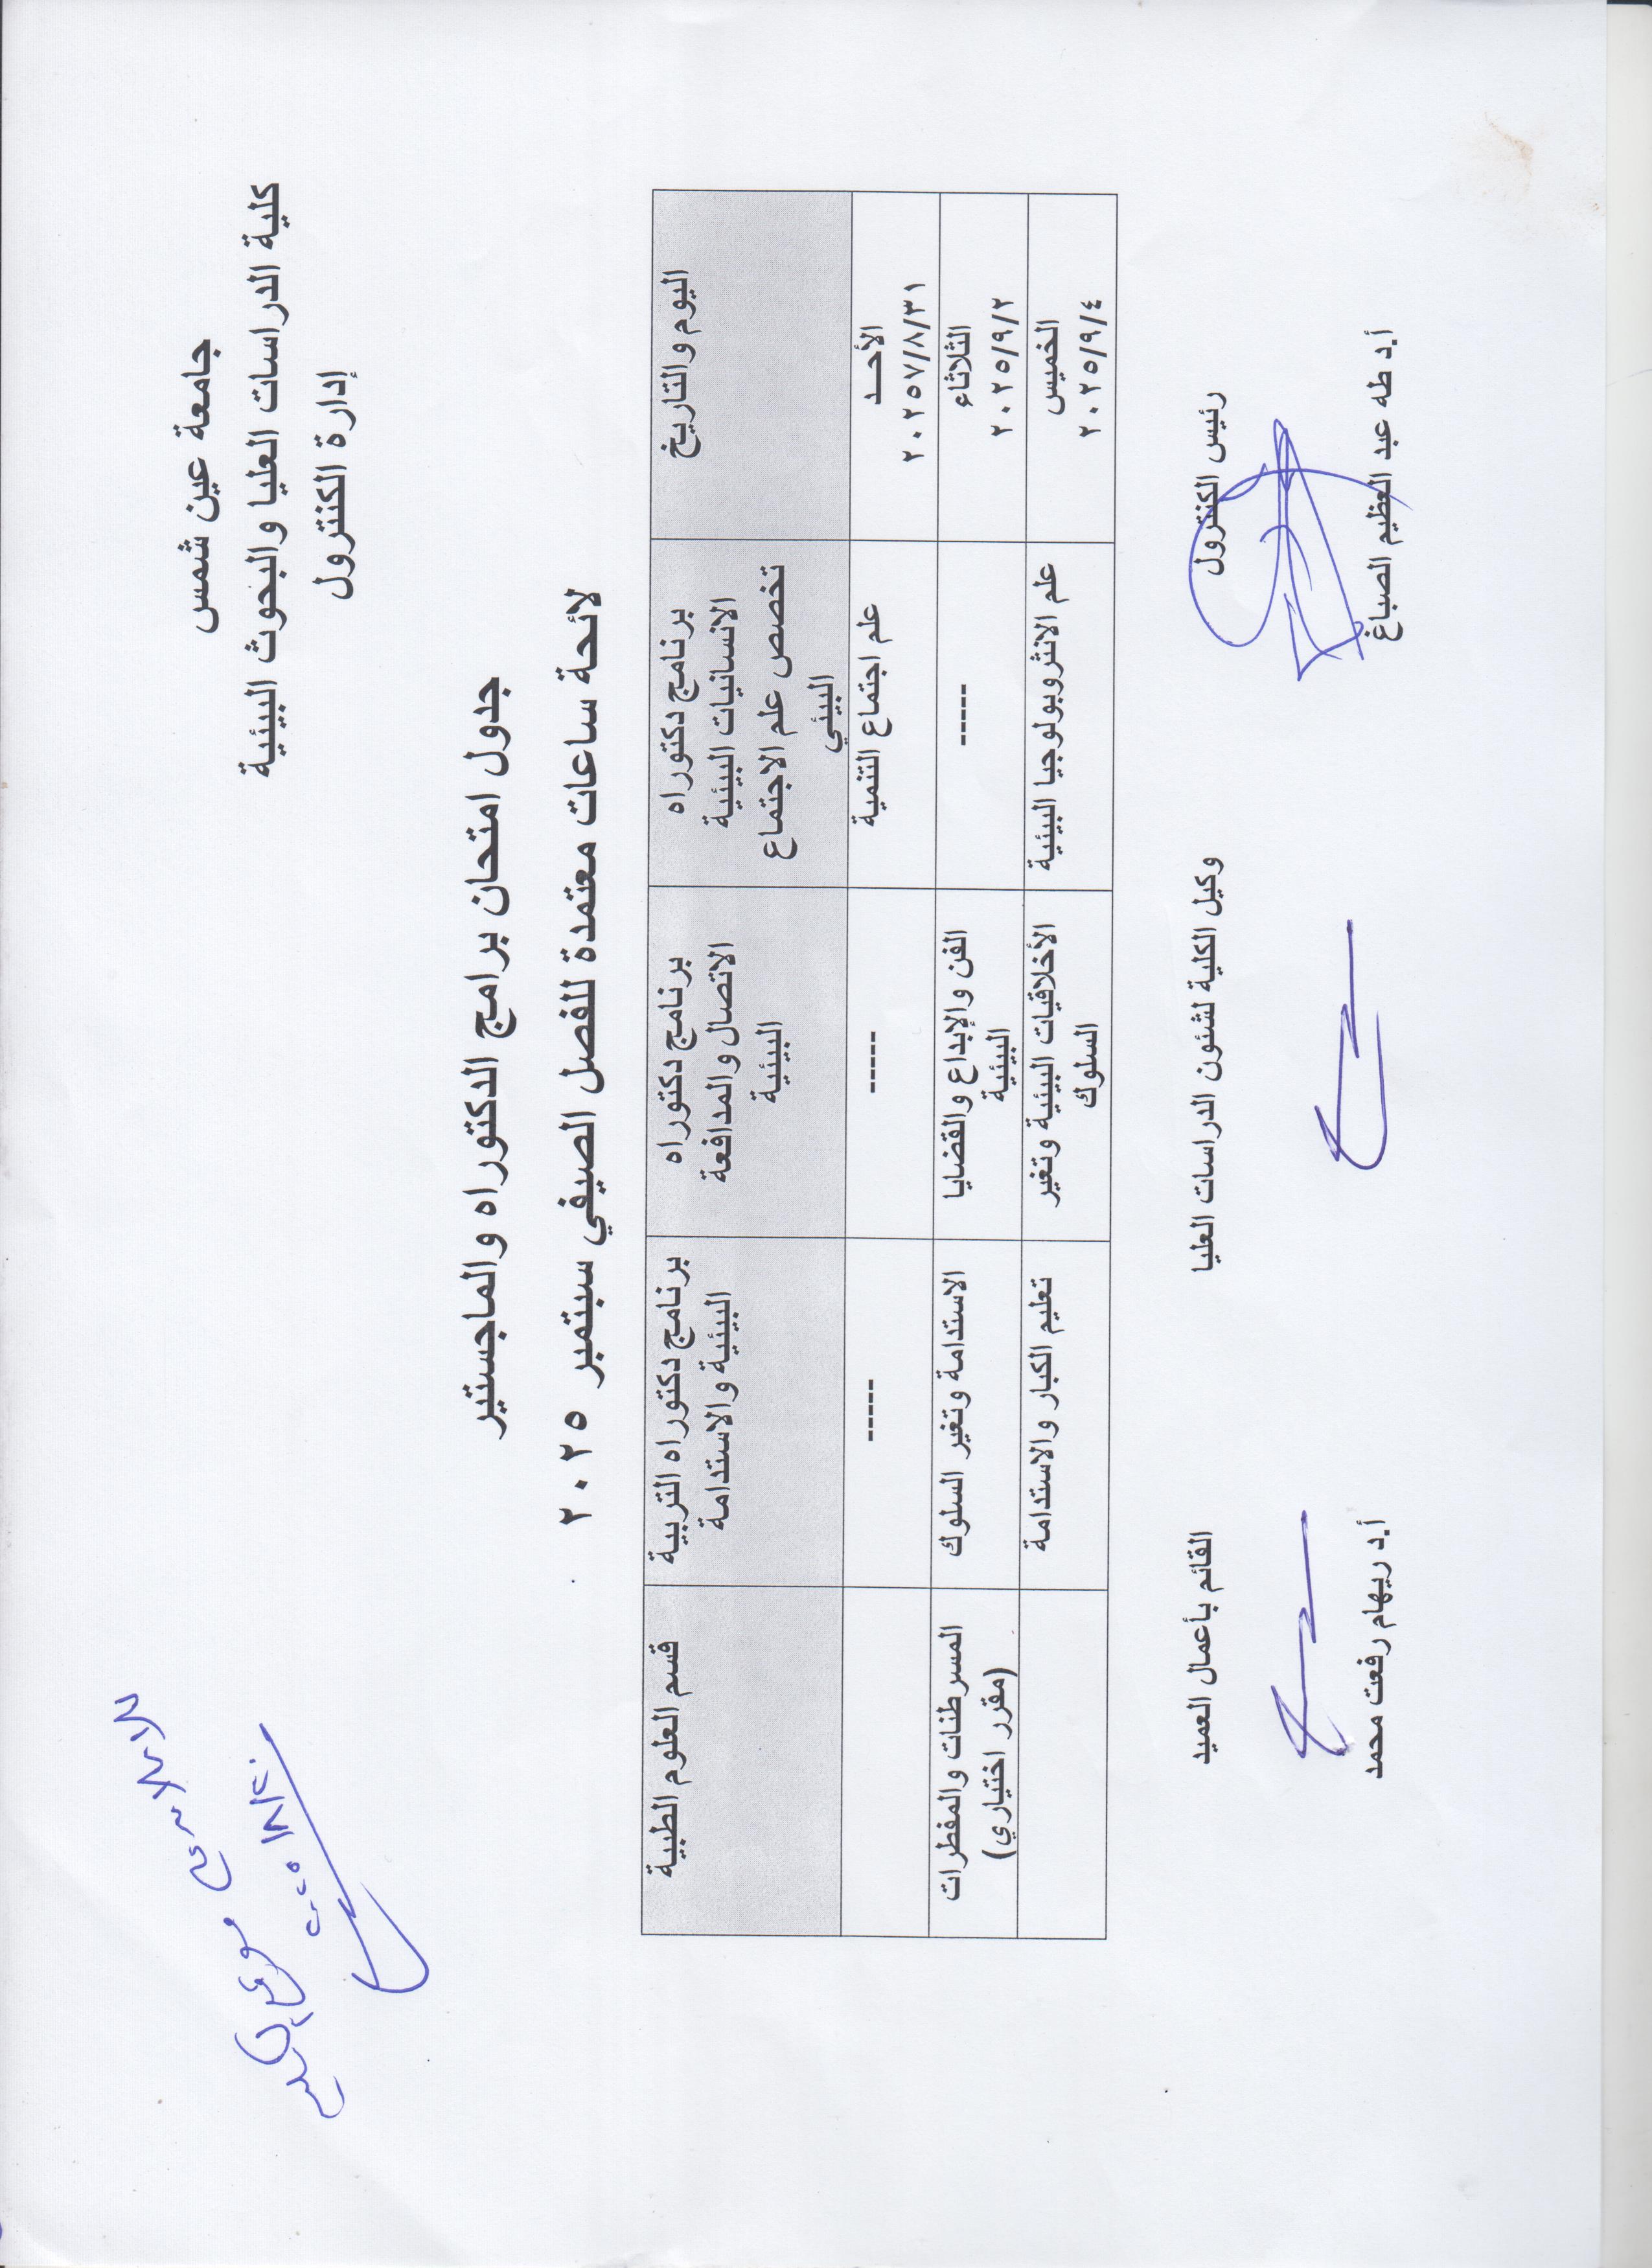 جامعة عين شمس
كلية الدراسات العليا والبحوث البيئية
إدارة الكنترول
جدول امتحان برامج الدكتوراه والماجستير
لائحة ساعات معتمدة للفصل الصيفي سبتمبر ٢٠٢٥
اليوم والتاريخ
برنامج دكتوراه
الانسانيات البيئية
تخصص علم الاجتماع
البيئي
برنامج دكتوراه
الاتصال والمدافعة
البيئية
برنامج دكتوراه التربية
البيئية والاستدامة
قسم العلوم الطبية
الأحــد
٢٠٢٥٧/٨/٣١
علم اجتماع التنمية
-----
-----
الثلاثاء
٢٠٢٥/٩/٢
-----
الفن والإبداع والقضايا
البيئية
الاستدامة وتغير السلوك
المسرطنات والمفطرات
(مقرر اختياري)
الخميس
٢٠٢٥/٩/٤
علم الانثروبولوجيا البيئية
الأخلاقيات البيئية وتغير
السلوك
تعليم الكبار والاستدامة
رئيس الكنترول
وكيل الكلية لشئون الدراسات العليا
القائم بأعمال العميد
أ.د طه عبد العظيم الصباغ
أ.د ريهام رفعت محمد